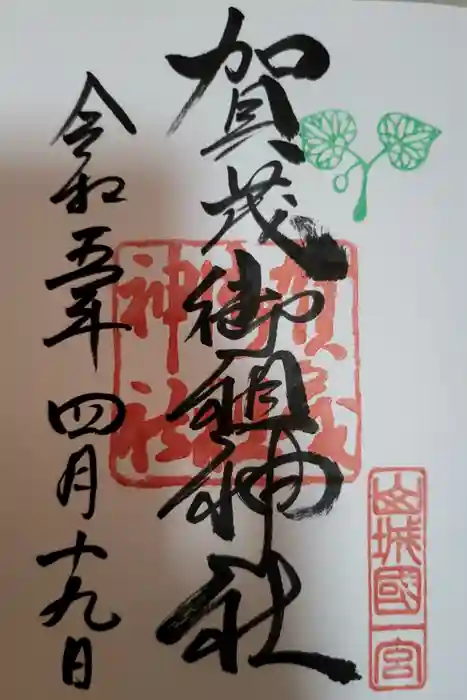 賀茂御祖神社
令和五年四月十九日
賀茂御祖神社
山城國一宮